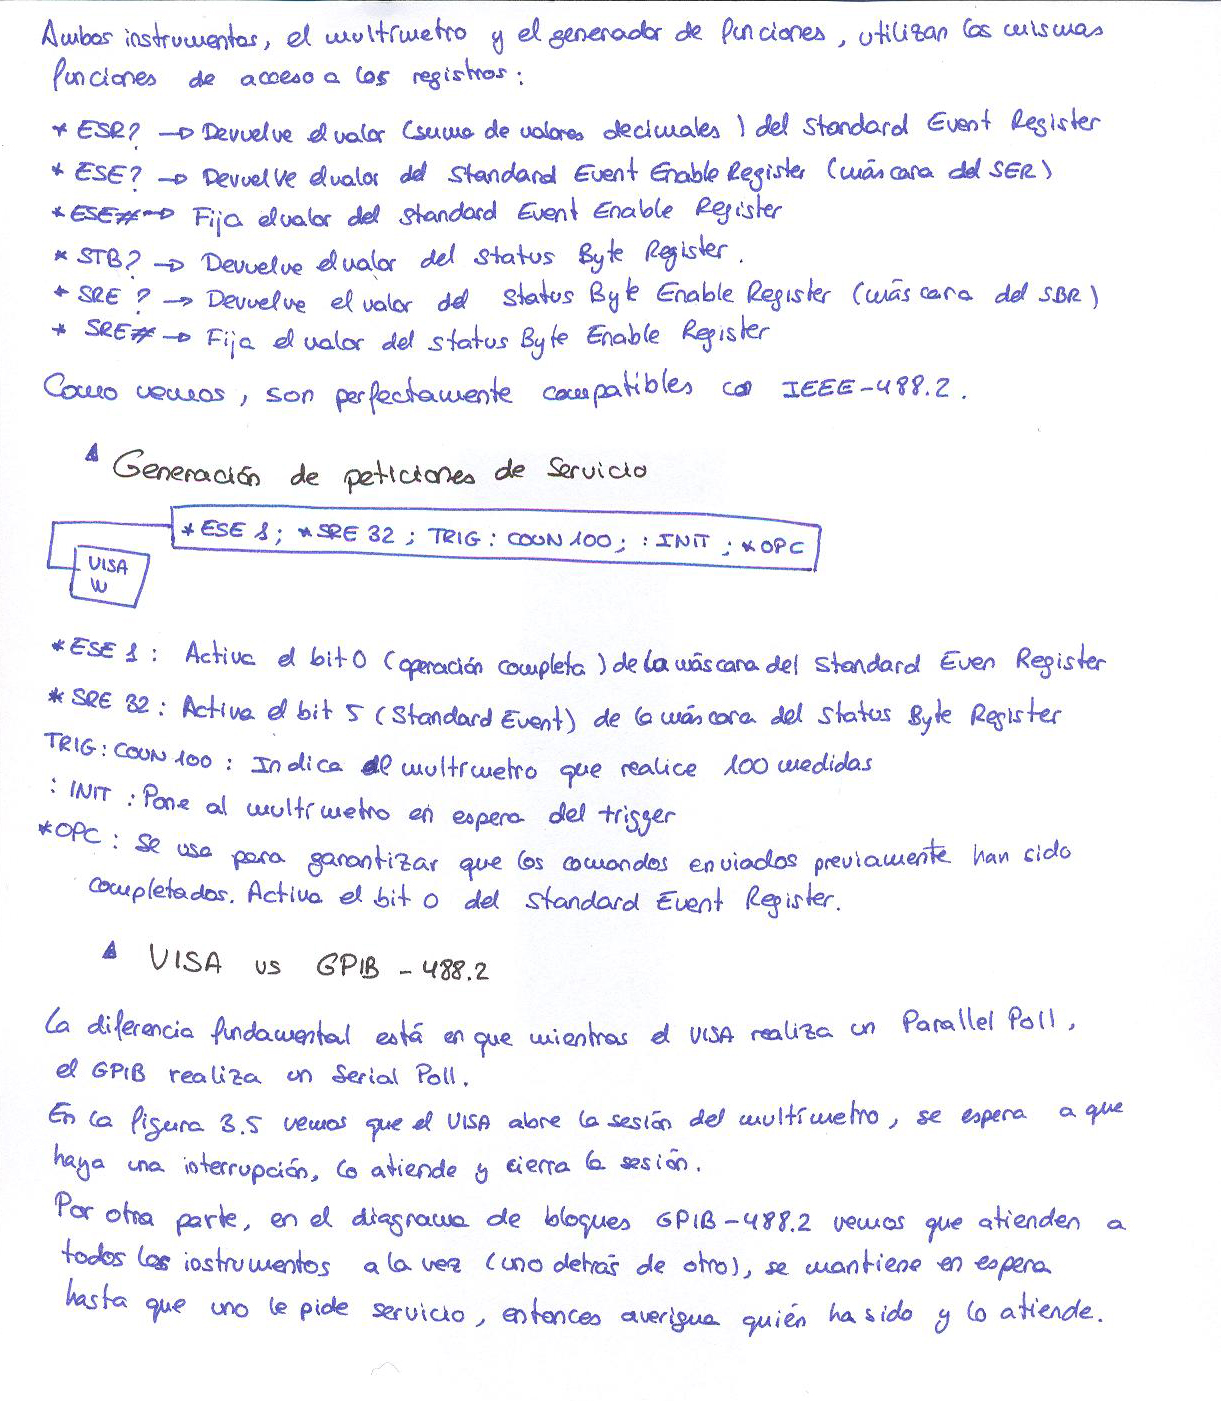 Ambos instrumentos, el multímetro y el generador de funciones, utilizan las mismas
funciones de acceso a los registros:
* ESR? → Devuelve el valor (suma de valores decimales) del Standard Event Register
* ESE? → Devuelve el valor del Standard Event Enable Register (máscara del SER)
* ESE# → Fija el valor del Standard Event Enable Register
* STB? → Devuelve el valor del Status Byte Register.
* SRE ? → Devuelve el valor del Status Byte Enable Register (máscara del SBR)
* SRE# → Fija el valor del Status Byte Enable Register
Como vemos, son perfectamente compatibles con IEEE-488.2.
Generación de peticiones de Servicio
* ESE 1; * SRE 32 ; TRIG : COUN 100; : INIT ; * OPC
VISA
W
* ESE 1 : Activa el bit 0 (operación completa) de la máscara del Standard Even Register
* SRE 32 : Activa el bit 5 (Standard Event) de la máscara del Status Byte Register
TRIG : COUN 100 : Indica al multímetro que realice 100 medidas
: INIT : Pone al multímetro en espera del trigger
* OPC : Se usa para garantizar que los comandos enviados previamente han sido
completados. Activa el bit 0 del Standard Event Register.
VISA vs GPIB - 488.2
La diferencia fundamental está en que mientras el VISA realiza un Parallel Poll,
el GPIB realiza un Serial Poll.
En la figura 3.5 vemos que el VISA abre la sesión del multímetro, se espera a que
haya una interrupción, lo atiende y cierra la sesión.
Por otra parte, en el diagrama de bloques GPIB-488.2 vemos que atienden a
todos los instrumentos a la vez (uno detrás de otro), se mantiene en espera
hasta que uno le pide servicio, entonces averigua quién ha sido y lo atiende.